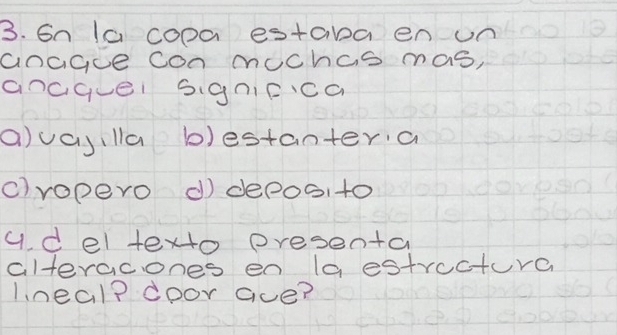 3. En la copa estaba en un
anaque con muchas mas,
anaquel significa
a) vajilla b) estanteria
c) ropero d) deposito
4. ¿ el texto presenta
alteraciones en la estructura
lineal? ¿por que?